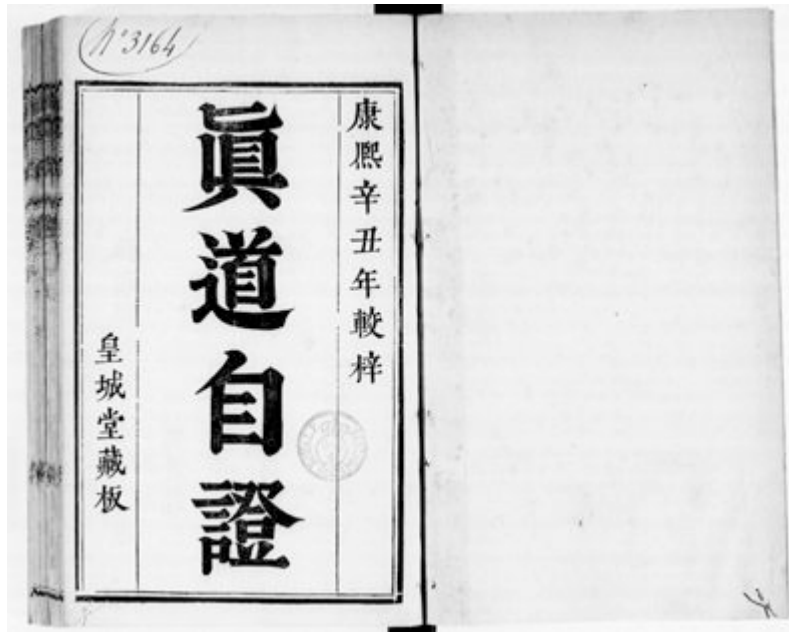 N° 3164
康熈辛丑年較梓
眞道自證
皇城堂藏板